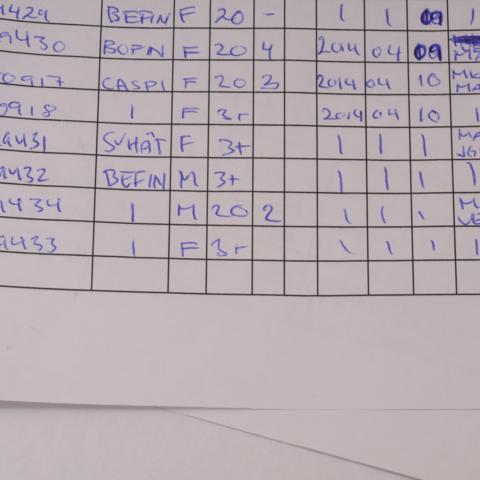 9429 BEFIN F 20 - 1 1 09 1
9430 BOPIN F 20 4 2014 04 09
0917 CASPI F 20 3 2014 04 10 MK MA
0918 1 F 3+ 2014 04 10 1
9431 SVHÄT F 3+ 1 1 1 MA JG
9432 BEFIN M 3+ 1 1 1 1
9434 1 M 20 2 1 1 1 VE
9433 1 F 3+ 1 1 1 1